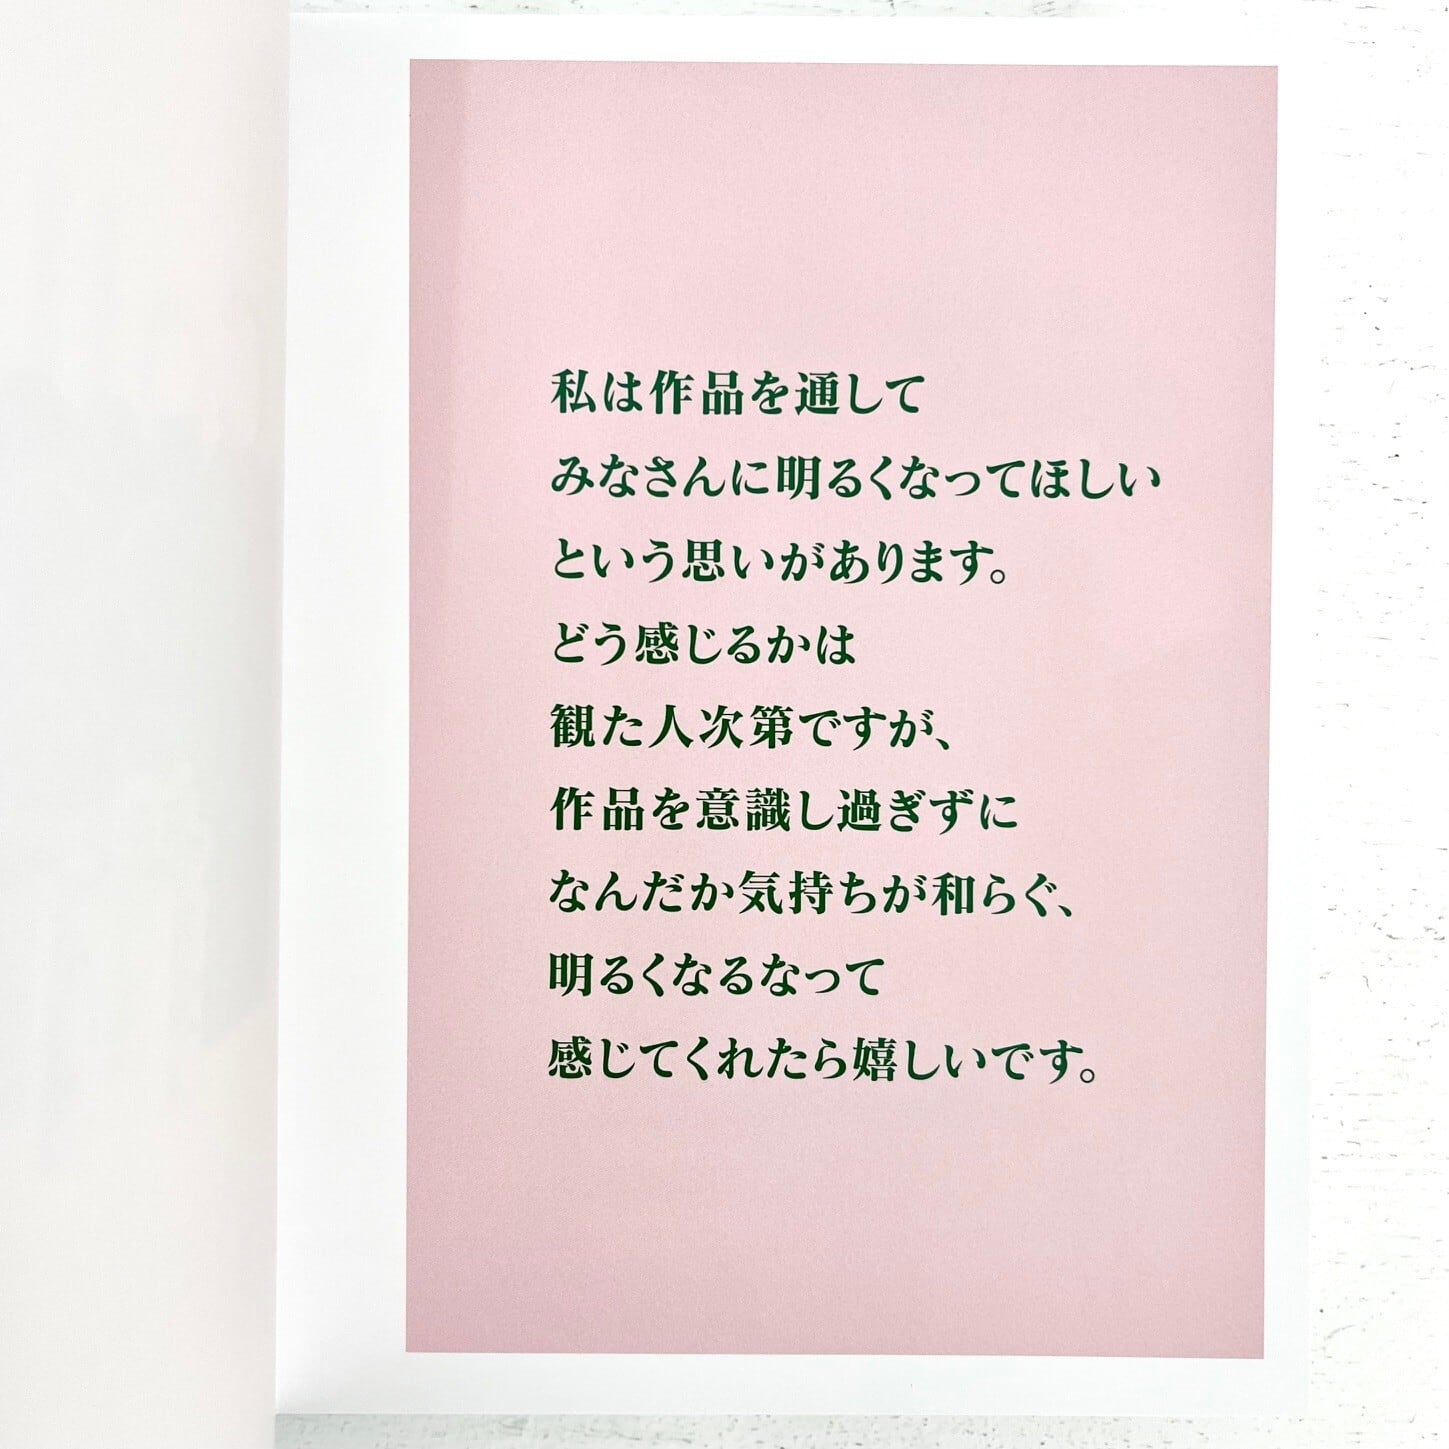 私は作品を通して
みなさんに明るくなってほしい
という思いがあります。
どう感じるかは
観た人次第ですが、
作品を意識し過ぎずに
なんだか気持ちが和らぐ、
明るくなるなって
感じてくれたら嬉しいです。